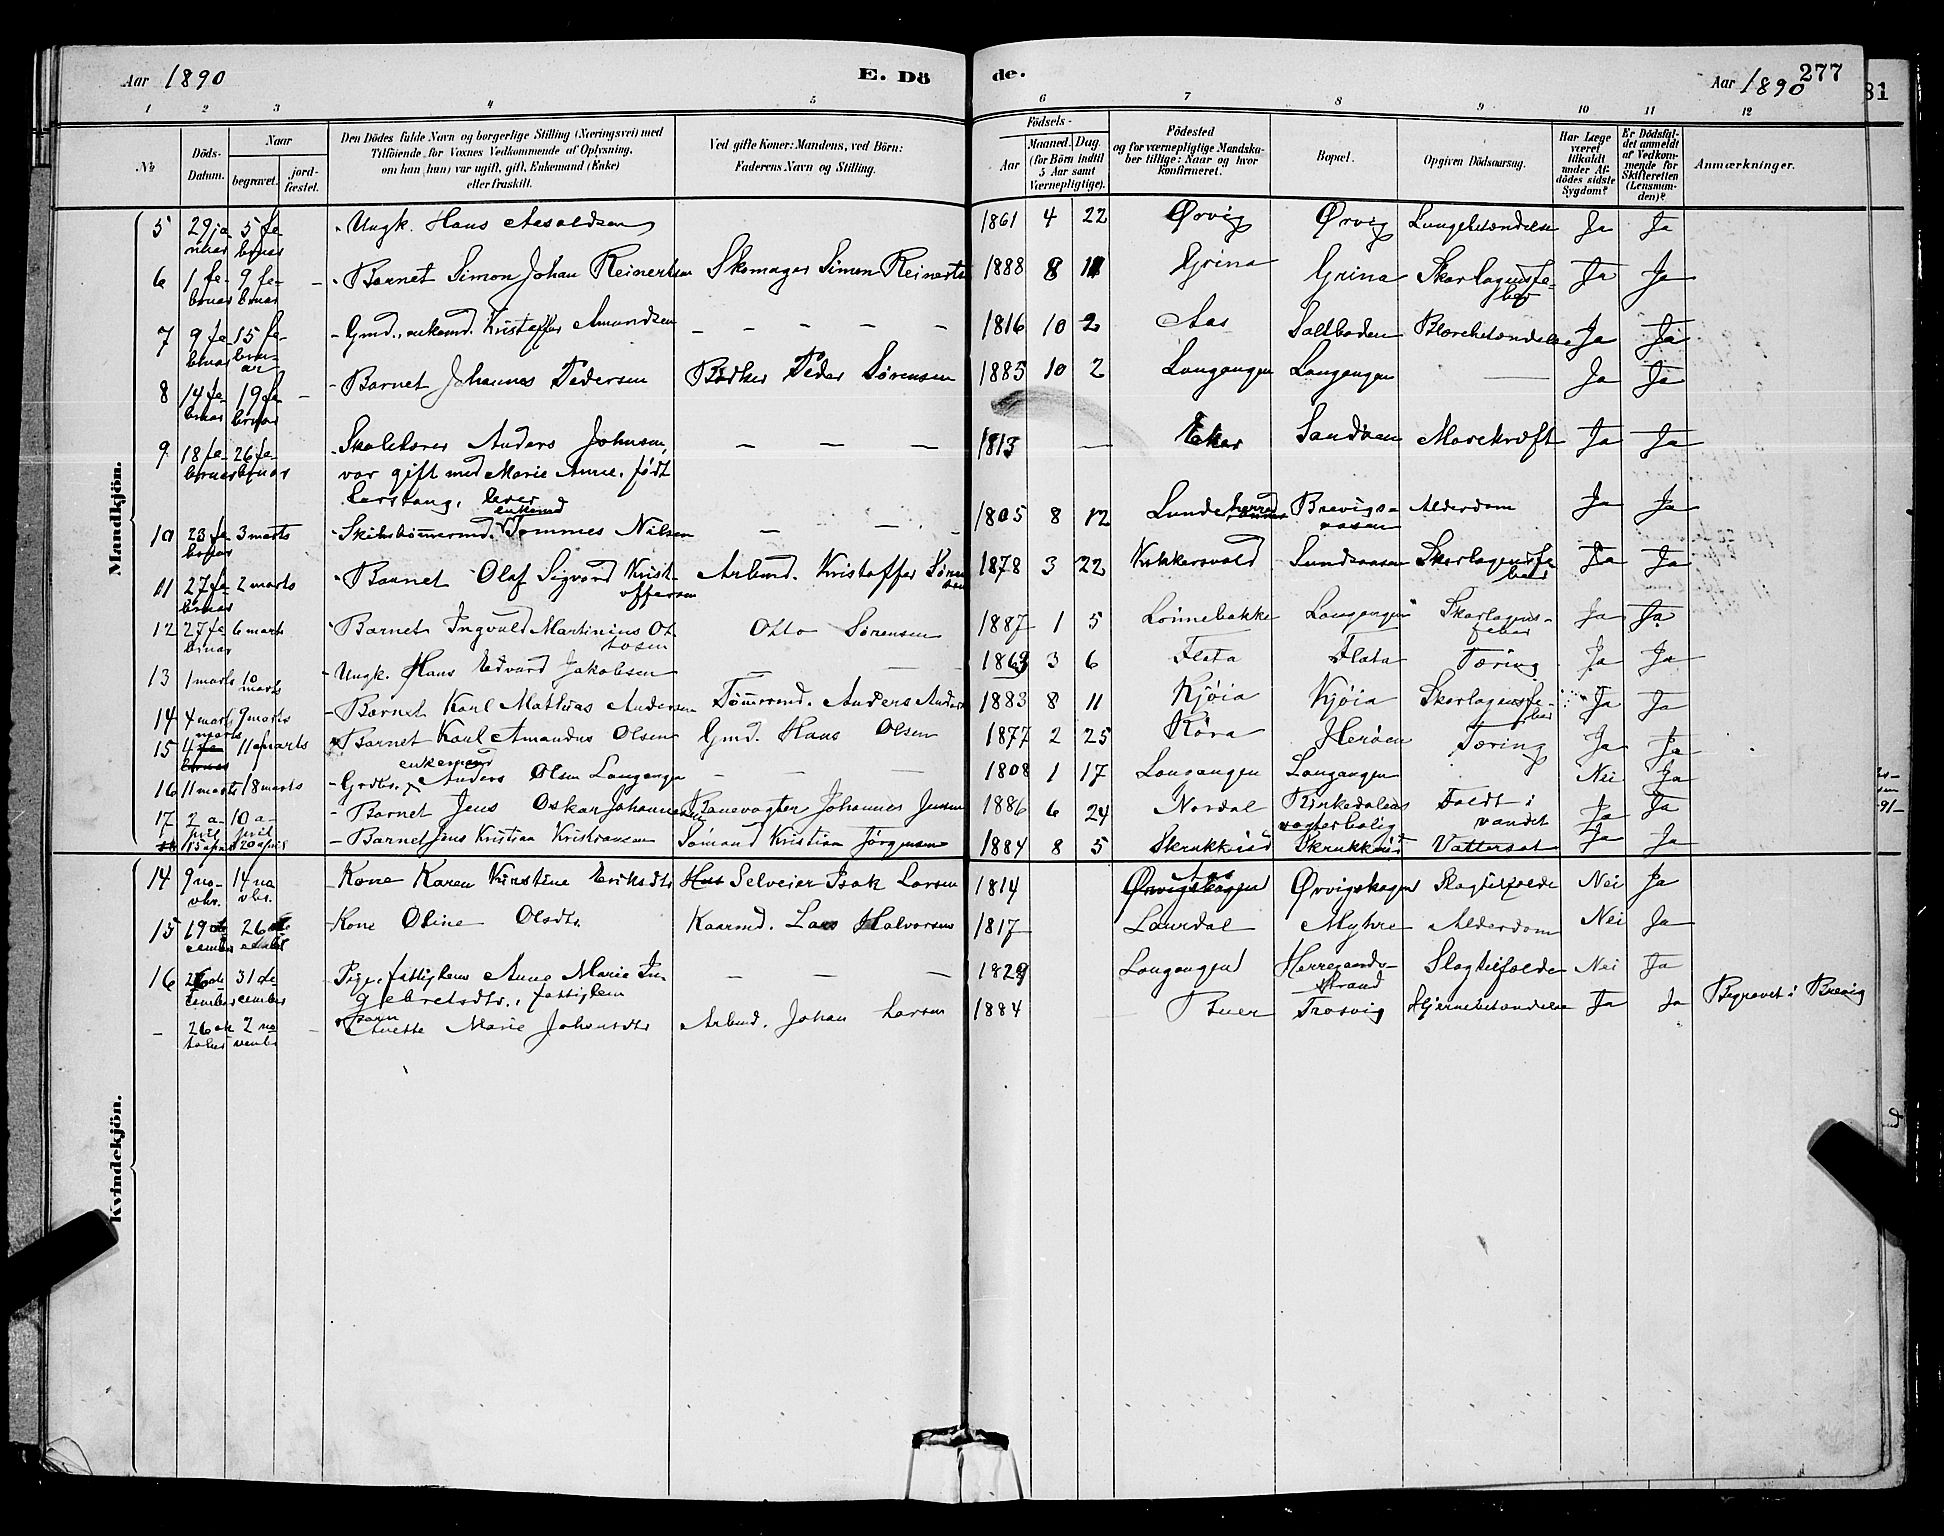 Aar 1890 E. Dö de. Aar 1890 277
81
1 2 3 4 5 6 7 8 9 10 11 12
No Döds-Datum. Naar begravet. jord-fæstet. Den Dödes fulde Navn og borgerlige Stilling (Næringsvei) med Tilföiende for Voxnes Vedkommende af Oplysning, om han (hun) var ugift, gift, Enkemand (Enke) eller fraskilt. Ved gifte Koner: Mandens, ved Börn: Faderens Navn og Stilling. Födsels- Aar Maaned. Dag. (for Börn indtil 5 Aar samt Værnepligtige). Födested og for værnepligtige Mandskaber tillige: Naar og hvor konfirmeret. Bopæl. Opgiven Dödsaarsag. Har Læge været tilkaldt under Afdödes sidste Sygdom? Er Dödsfaldet anmeldt af Vedkommende for Skifteretten (Lensmanden)? Anmærkninger.
Mandkjön.
5 29 januar 5 februar Ungk. Hans Aasoldsen 1861 4 22 Ørvig Ørvig Lungebetændelse Ja Ja
6 1 februar 9 februar - Barnet Simon Johan Reinertsen Skomager Simon Reinertsen 1888 8 11 Grina Grina Skarlagensfeber Ja Ja
7 9 februar 15 februar Gmd., enkemd. Kristoffer Amundsen - - - - - 1816 10 2 Aas Saltboden Blærebetændelse Ja Ja
8 14 februar 19 februar - Barnet Johannes Pedersen Bødker Peder Sørensen 1885 10 2 Langangen Langangen — Ja Ja
9 18 februar 26 februar Skolelærer Anders Johnsen, - - - 1813 — Eker Sandøen Mavekræft Ja Ja
var gift med Marie Anne, født
Larstang, lever
10 23 februar 3 marts Skibstømmermd. enkemd Tommes Nilsen - - - 1805 8 12 Lundeherred Brevigsaasen Alderdom Ja Ja
11 27 februar 2 marts Barnet Olaf Sigvard Kristoffersen Arbmd. Kristoffer 1878 3 22 Kokkersvold Sundsaasen Skarlagensfeber Ja Ja
12 27 februar 6 marts Barnet Ingvald Martinius Ottosen Otto Sørensen 1887 1 5 Lønnebakke Langangen Skarlagensfeber Ja Ja
13 1 marts 10 marts Ungk. Hans Edvard Jakobsen — — 1863 3 6 Flata Flata Tæring Ja Ja
14 4 marts 9 marts Barnet Karl Mathias Andersen Tømmermd. Anders Anders 1883 8 11 Kjøia Kjøia Skarlagensfeber Ja Ja
15 4 marts 11 marts Barnet Karl Amandus Olsen Gmd. Hans Olsen 1877 2 25 Røra Herøen Tæring Ja Ja
16 11 marts 18 marts Grdbr. enkemand Anders Olsen Langangen - — — 1808 1 17 Langangen Langangen Nei Ja
17 2 april 10 april Barnet Jens Oskar Johannesen Banevogter Johannes Jensen 1886 6 24 Nordal vogterbolig Faldt i vandet Ja Ja
15 april 20 april Barnet Jens Kristian Kristiansen Sømand Kristian Jørgensen 1884 8 5 Skrukkerød Skrukkerød Vattersot Ja Ja
Kvindekjön.
14 9 novbr. 14 novbr. Kone Karen Kirstine Eriksdtr Selveier Isak Larsen 1814 Ørvigskogen Aas Ørvigskogen Slagtilfælde Nei Ja
15 19 december 26 december Kone Oline Olsdtr. Kaarmd. Lars Halvorsen 1817 Laurdal Myhre Alderdom Nei Ja
16 26 december 31 december Pige, fattiglem Anne Maria Ingebretsdtr., fattiglem - - - 1829 Langangen Herregaardsstrand Slagtilfælde Nei Ja
- 26 oktober 2 november - Barn Anette Marie Johansdtr Arbmd. Johan Larsen 1884 — Buer Trosvig Hjernebetændelse Ja Ja Begravet i Brevig